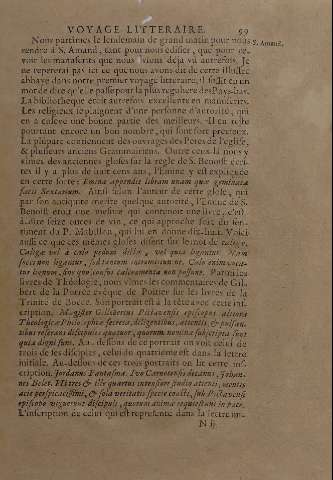 VOYAGE LITTERAIRE. 99
Nous partimes le lendemain de grand matin pour nous S. Amand.
rendre à S. Amand, tant pour nous édifier, que pour re-
voir les manuscrits que nous avions déja vû autrefois. Je
ne repeterai pas ici ce que nous avons dit de cette illustre
abbaye dans notre premier voyage litteraire, il suffit en un
mot de dire qu'elle passe pour la plus reguliere des Pays-bas.
La bibliotheque étoit autrefois excellente en manuscrits.
Les religieux se plaignent d'une personne d'autorité, qui
en a enlevé une bonne partie des meilleurs. Il en reste
pourtant encore un bon nombre, qui sont fort precieux.
La plûpart contiennent des ouvrages des Peres de l'église,
& plusieurs anciens Grammairiens. Outre ceux là nous y
vîmes des anciennes gloses sur la regle de S. Benoît écri-
tes il y a plus de huit cens ans, l'Emine y est expliquée
en cette sorte: Emina appendit libram unam quæ geminata
facit Sextarium. Ainsi selon l'auteur de cette glose, qui
par son antiquité merite quelque autorité, l'Emine de S.
Benoît étoit une mesure qui contenoit une livre, c'est
à dire seize onces de vin, ce qui approche fort du sen-
timent du P. Mabillon, qui lui en donne dix-huit. Voici
aussi ce que ces mêmes gloses disent sur le mot de caliga.
Caliga vel à callo pedum dicta, vel quia ligentur. Nam
socci non ligantur, sed tantum intromittuntur.
livres de Théologie, nous vîmes les commentaires de Gil-
bert de la Poirée évêque de Poitier sur les livres de la
Trinité de Boece. Son portrait est à la tête avec cette ins-
cription. Magister Gillebertus Pictavensis episcopus altiora
Theologicæ Philosophiæ secreta, diligentibus, attentis & pulsan-
tibus reserans discipulis quatuor, quorum nomina subscripta sunt
quia digni sunt. Au-dessous de ce portrait on voit celui de
trois de ses disciples, celui du quatriéme est dans la lettre
initiale. Au-dessous de ces trois portraits on lit cette ins-
cription. Jordanus Fantasma, Ivo Carnotensis decanus, Johan-
nes Belet. Hi tres & ille quartus intensiore studio attenti, mentis
acie perspicacissimi, & sola veritatis specie coacti, sub Pictavensi
episcopo viguerunt discipuli, quorum animæ requiescant in pace.
L'inscription de celui qui est representé dans la lettre ini-
N ij